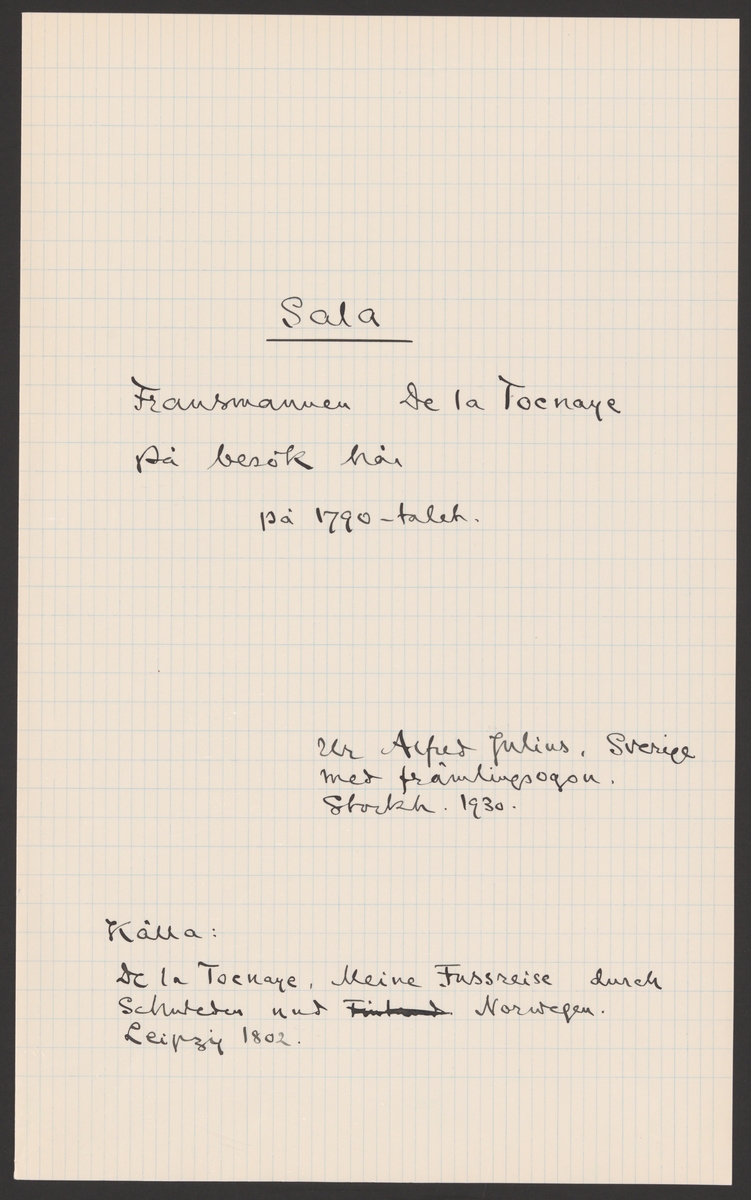 Sala
Fransmannen De la Tocnaye
på besök här
på 1790-talet.
Ur Alfred Julius, Sverige
med främlingsögon.
Stockh. 1930.
Källa:
De la Tocnaye, Meine Fussreise durch
Schweden und Finland Norwegen.
Leipzig 1802.